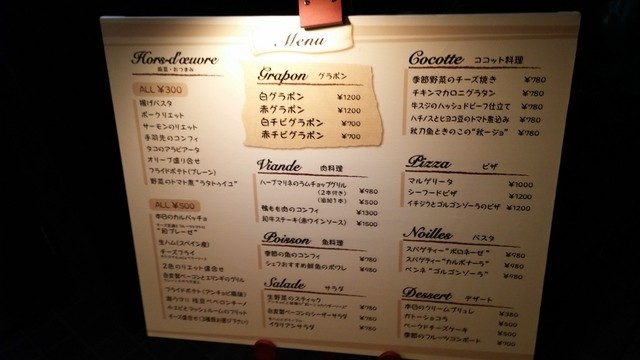 Menu
Hors-d'œuvre
前菜・おつまみ
ALL ¥300
揚げパスタ
ポークリエット
サーモンのリエット
手羽先のコンフィ
タコのアラビアータ
オリーブ盛り合せ
フライドポテト(プレーン)
野菜のトマト煮"ラタトゥイユ"
ALL ¥500
本日のカルパッチョ
"和ブレーゼ"
生ハム(スペイン産)
チーズフライ
2色のリエット盛合せ
自家製ベーコンとエリンギのグリル
フライドポテト(アンチョビ風味)
Grapon グラポン
白グラポン ¥1200
赤グラポン ¥1200
白チビグラポン ¥700
赤チビグラポン ¥700
Viande 肉料理
ハーブマリネのラムチョップグリル
(2本付き) ¥980
(追加1本) ¥500
鴨もも肉のコンフィ ¥1300
和牛ステーキ(赤ワインソース) ¥1500
Poisson 魚料理
季節の魚のコンフィ ¥980
シェフおすすめ鮮魚のポワレ ¥980
Salade サラダ
生野菜のスティック ¥780
自家製ベーコンのシーザーサラダ ¥780
イタリアンサラダ ¥780
Cocotte ココット料理
季節野菜のチーズ焼き ¥780
チキンマカロニグラタン ¥780
牛スジのハッシュドビーフ仕立て ¥780
ハチノスとヒヨコ豆のトマト煮込み ¥780
秋刀魚ときのこの"秋ージョ" ¥780
Pizza ピザ
マルゲリータ ¥1000
シーフードピザ ¥1200
イチジクとゴルゴンゾーラのピザ ¥1200
Noilles パスタ
スパゲティー"ボロネーゼ" ¥980
スパゲティー"カルボナーラ" ¥980
ペンネ"ゴルゴンゾーラ" ¥980
Dessert デザート
本日のクリームブリュレ ¥380
ガトーショコラ ¥500
ベークドチーズケーキ ¥500
季節のフルーツコンポート ¥500